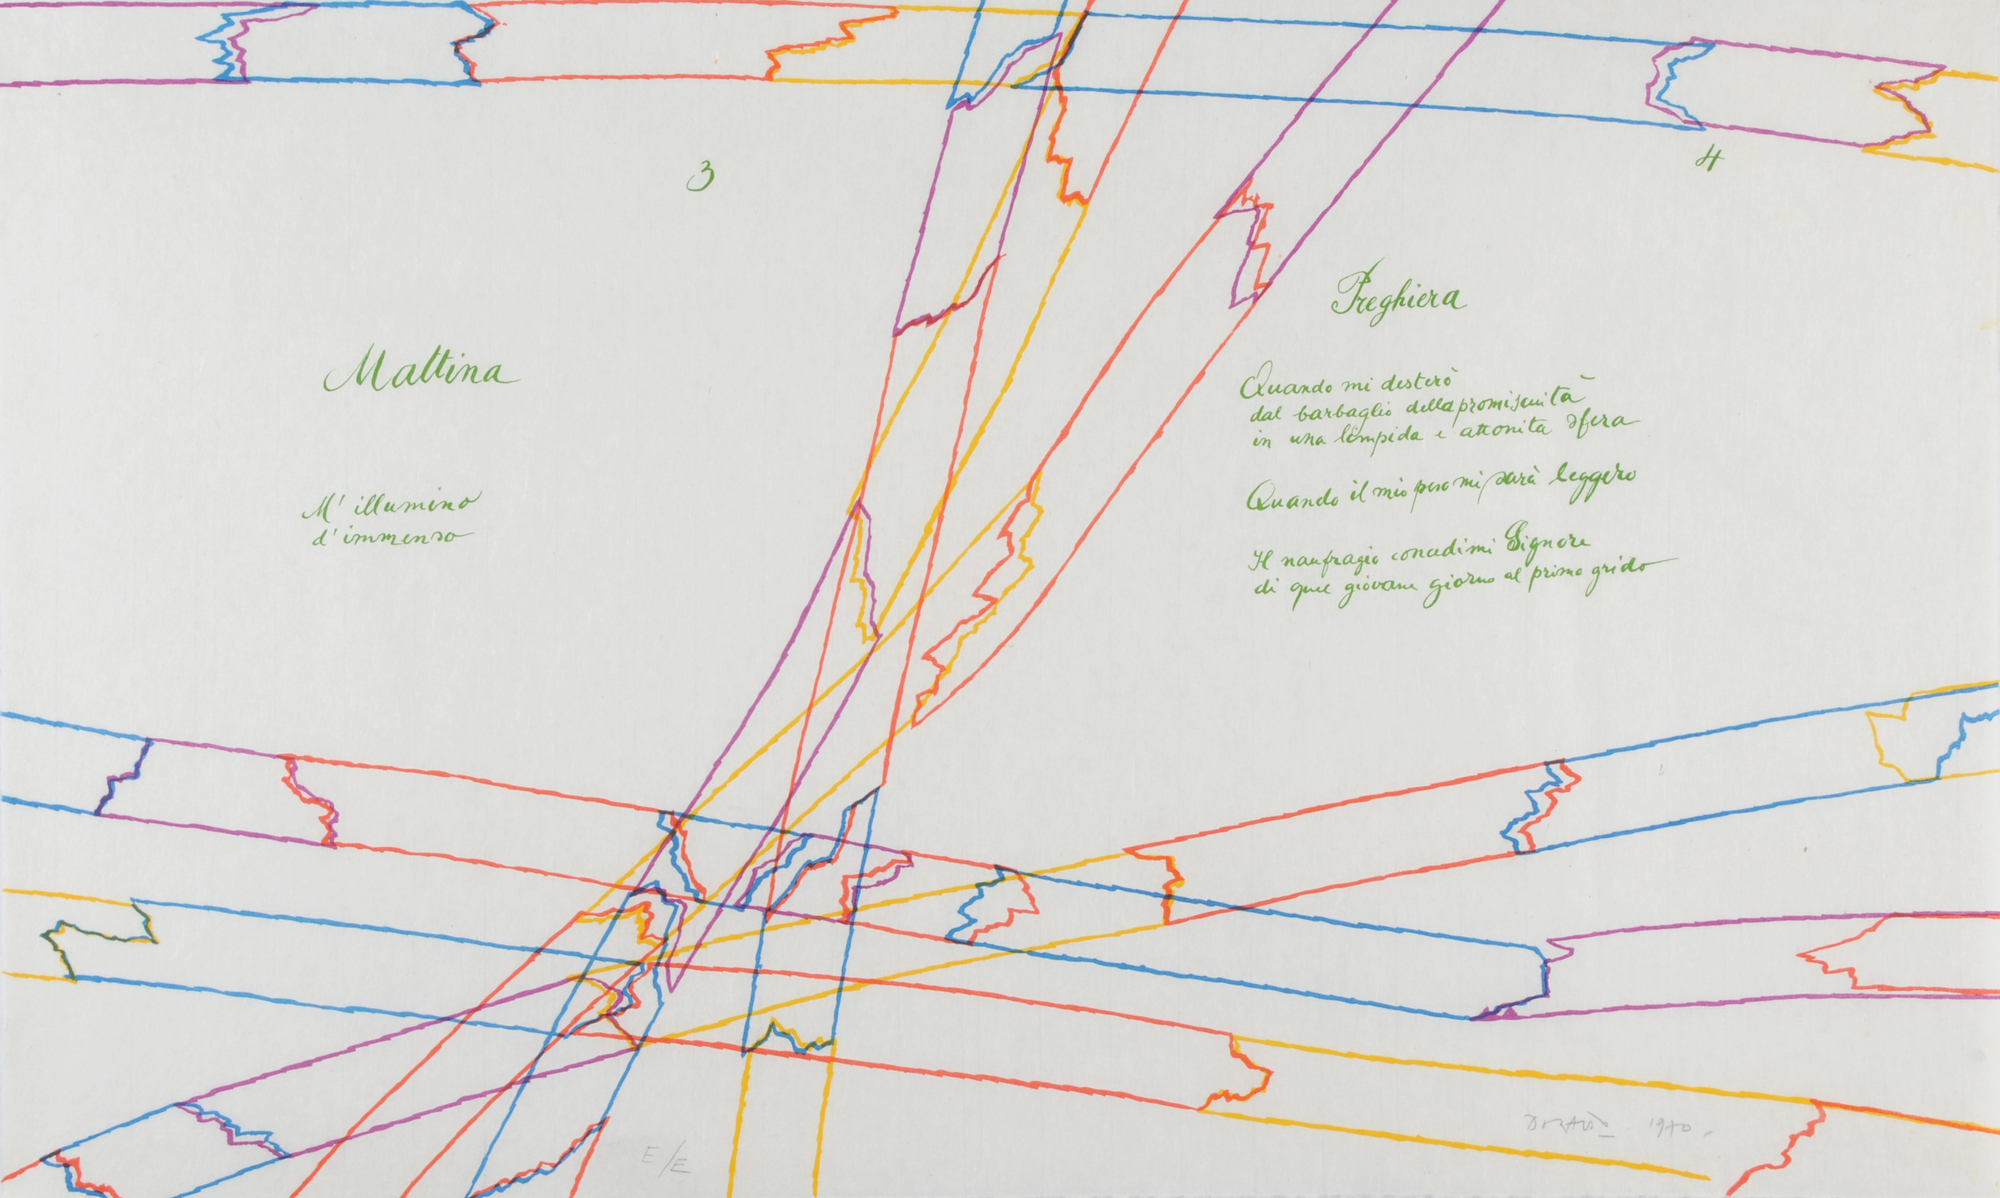 3
Mattina
M' illumino
d'immenso
4
Preghiera
Quando mi desterò
dal barbaglio della promiscuità
in una limpida e attonita sfera
Quando il mio peso mi sarà leggero
Il naufragio concedimi Signore
di quel giovane giorno al primo grido
E/E
Dorazio 1970.